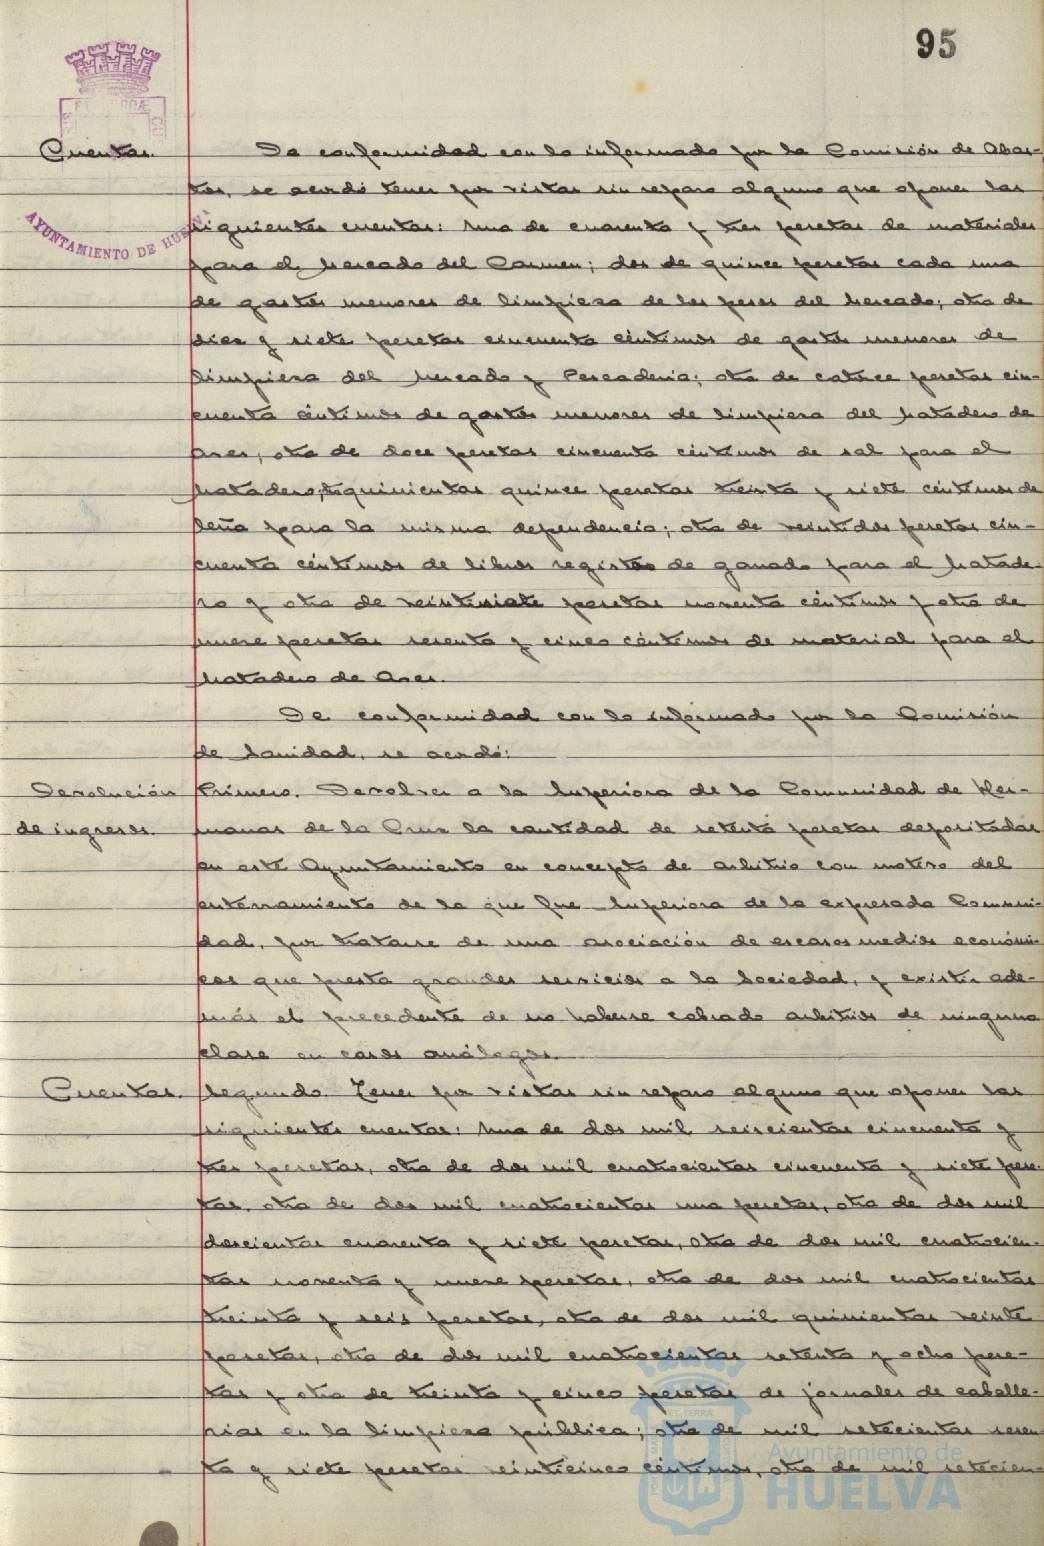 95
Cuentas.
De conformidad con lo informado por la Comisión de Abas-
tos, se acordó tener por vistas sin reparo alguno que oponer las
AYUNTAMIENTO DE HUELVA
siguientes cuentas: una de cuarenta y tres pesetas de materiales
para el Mercado del Carmen; dos de quince pesetas cada una
de gastos menores de limpieza de los pesos del Mercado; otra de
diez y siete pesetas cincuenta céntimos de gastos menores de
limpieza del Mercado y Pescaderia; otra de catorce pesetas cin-
cuenta céntimos de gastos menores de limpieza del Matadero de
Aves; otra de doce pesetas cincuenta céntimos de sal para el
Matadero; quinientas quince pesetas treinta y siete céntimos de
leña para la misma dependencia; otra de veintidos pesetas cin-
cuenta céntimos de libros registros de ganado para el Matade-
ro y otra de veintisiete pesetas noventa céntimos y otra de
nueve pesetas sesenta y cinco céntimos de material para el
Matadero de Aves.
De conformidad con lo informado por la Comisión
de Sanidad, se acordó:
Devolución
de ingresos.
Primero. Devolver a la Superiora de la Comunidad de Her-
manas de la Cruz la cantidad de setenta pesetas depositadas
en este Ayuntamiento en concepto de arbitrio con motivo del
enterramiento de la que fue Superiora de la expresada Comuni-
dad, por tratarse de una asociación de escasos medios económi-
cos que presta grandes servicios a la Sociedad, y existir ade-
más el precedente de no haberse cobrado arbitrios de ninguna
clase en casos análogos.
Cuentas.
Segundo. Tener por vistas sin reparo alguno que oponer las
siguientes cuentas: una de dos mil seiscientas cincuenta y
tres pesetas, otra de dos mil cuatrocientas cincuenta y siete pese-
tas, otra de dos mil cuatrocientas una pesetas, otra de dos mil
doscientas cuarenta y siete pesetas, otra de dos mil cuatrocien-
tas noventa y nueve pesetas, otra de dos mil cuatrocientas
treinta y seis pesetas, otra de dos mil quinientas veinte
pesetas, otra de dos mil cuatrocientas setenta y ocho pese-
tas y otra de treinta y cinco pesetas de jornales de caballe-
rias en la limpieza pública; otra de mil setecientas sesen-
ta y siete pesetas veinticinco céntimos, otra de mil setecien-
Ayuntamiento de
HUELVA